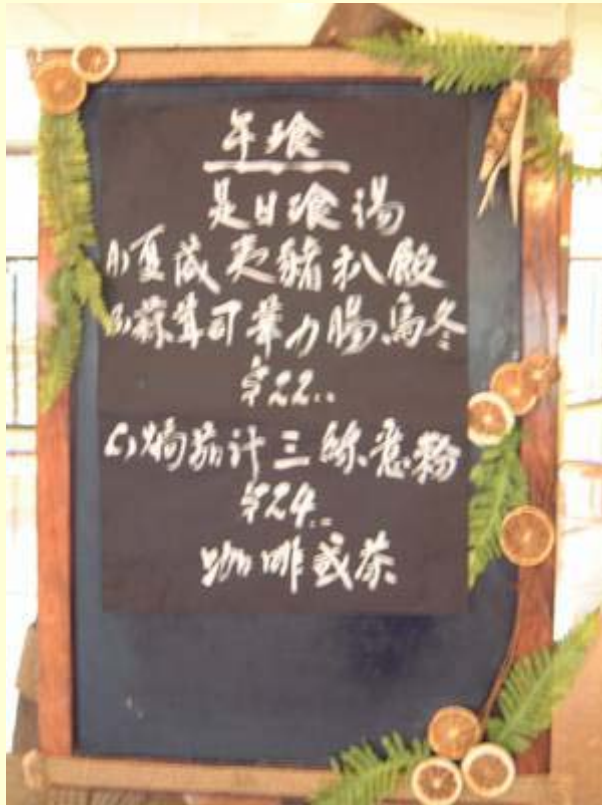 午飡
是日飡湯
A)夏威夷豬扒飯
B)蒜茸司華力腸烏冬
$22..
C)焗茄汁三絲意粉
$24..
咖啡或茶